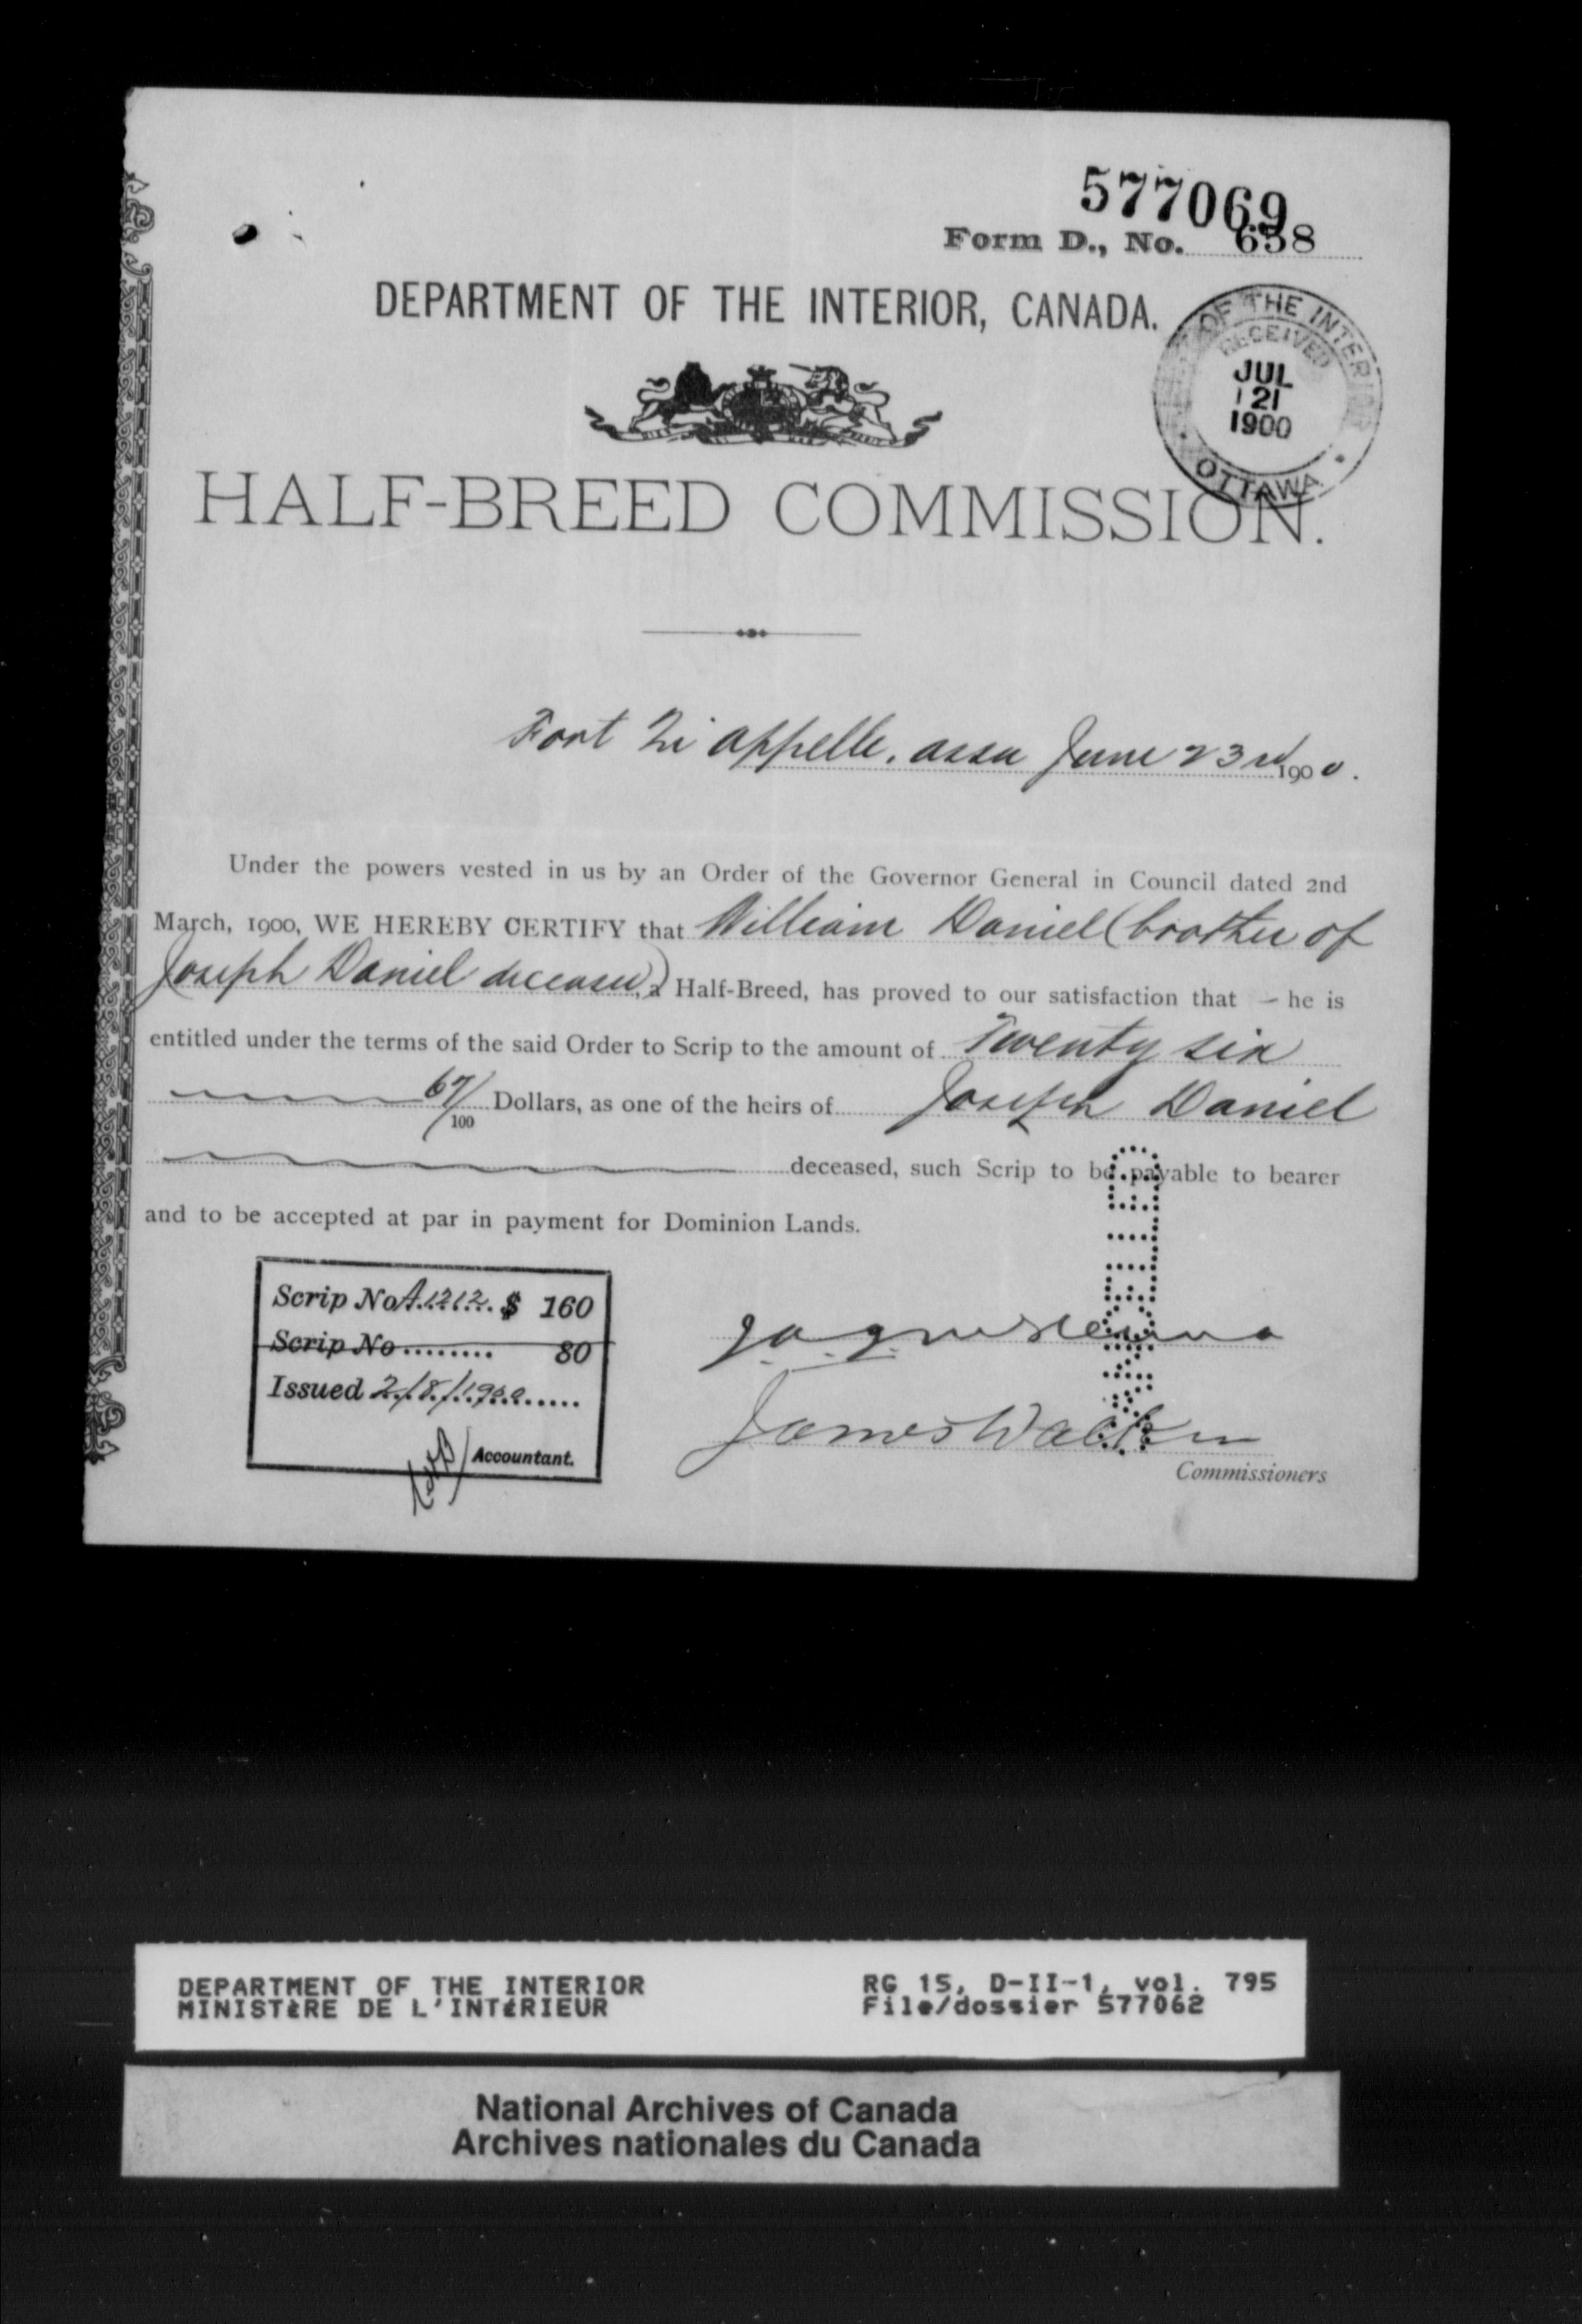 577069
Form D., No. 638
DEPARTMENT OF THE INTERIOR, CANADA.
OF THE INTERIOR
RECEIVED
JUL
21
1900
OTTAWA
HALF-BREED COMMISSION.
Fort Qu'appelle, assa June 23rd 1900.
Under the powers vested in us by an Order of the Governor General in Council dated 2nd
March, 1900, WE HEREBY CERTIFY that William Daniel (brother of
Joseph Daniel deceased), a Half-Breed, has proved to our satisfaction that – he is
entitled under the terms of the said Order to Scrip to the amount of Twenty six
67/100 Dollars, as one of the heirs of Joseph Daniel
deceased, such Scrip to be payable to bearer
and to be accepted at par in payment for Dominion Lands.
Scrip No A.1212. $ 160
Scrip No ........ 80
Issued 2/8/1900
Accountant.
CANCELLED
James Walker
Commissioners
DEPARTMENT OF THE INTERIOR
MINISTÈRE DE L'INTÉRIEUR
RG 15, D-II-1, vol. 795
File/dossier 577062
National Archives of Canada
Archives nationales du Canada